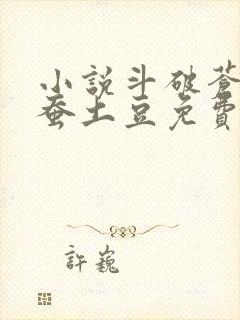 小說斗破蒼
蚕土豆免費
許巍